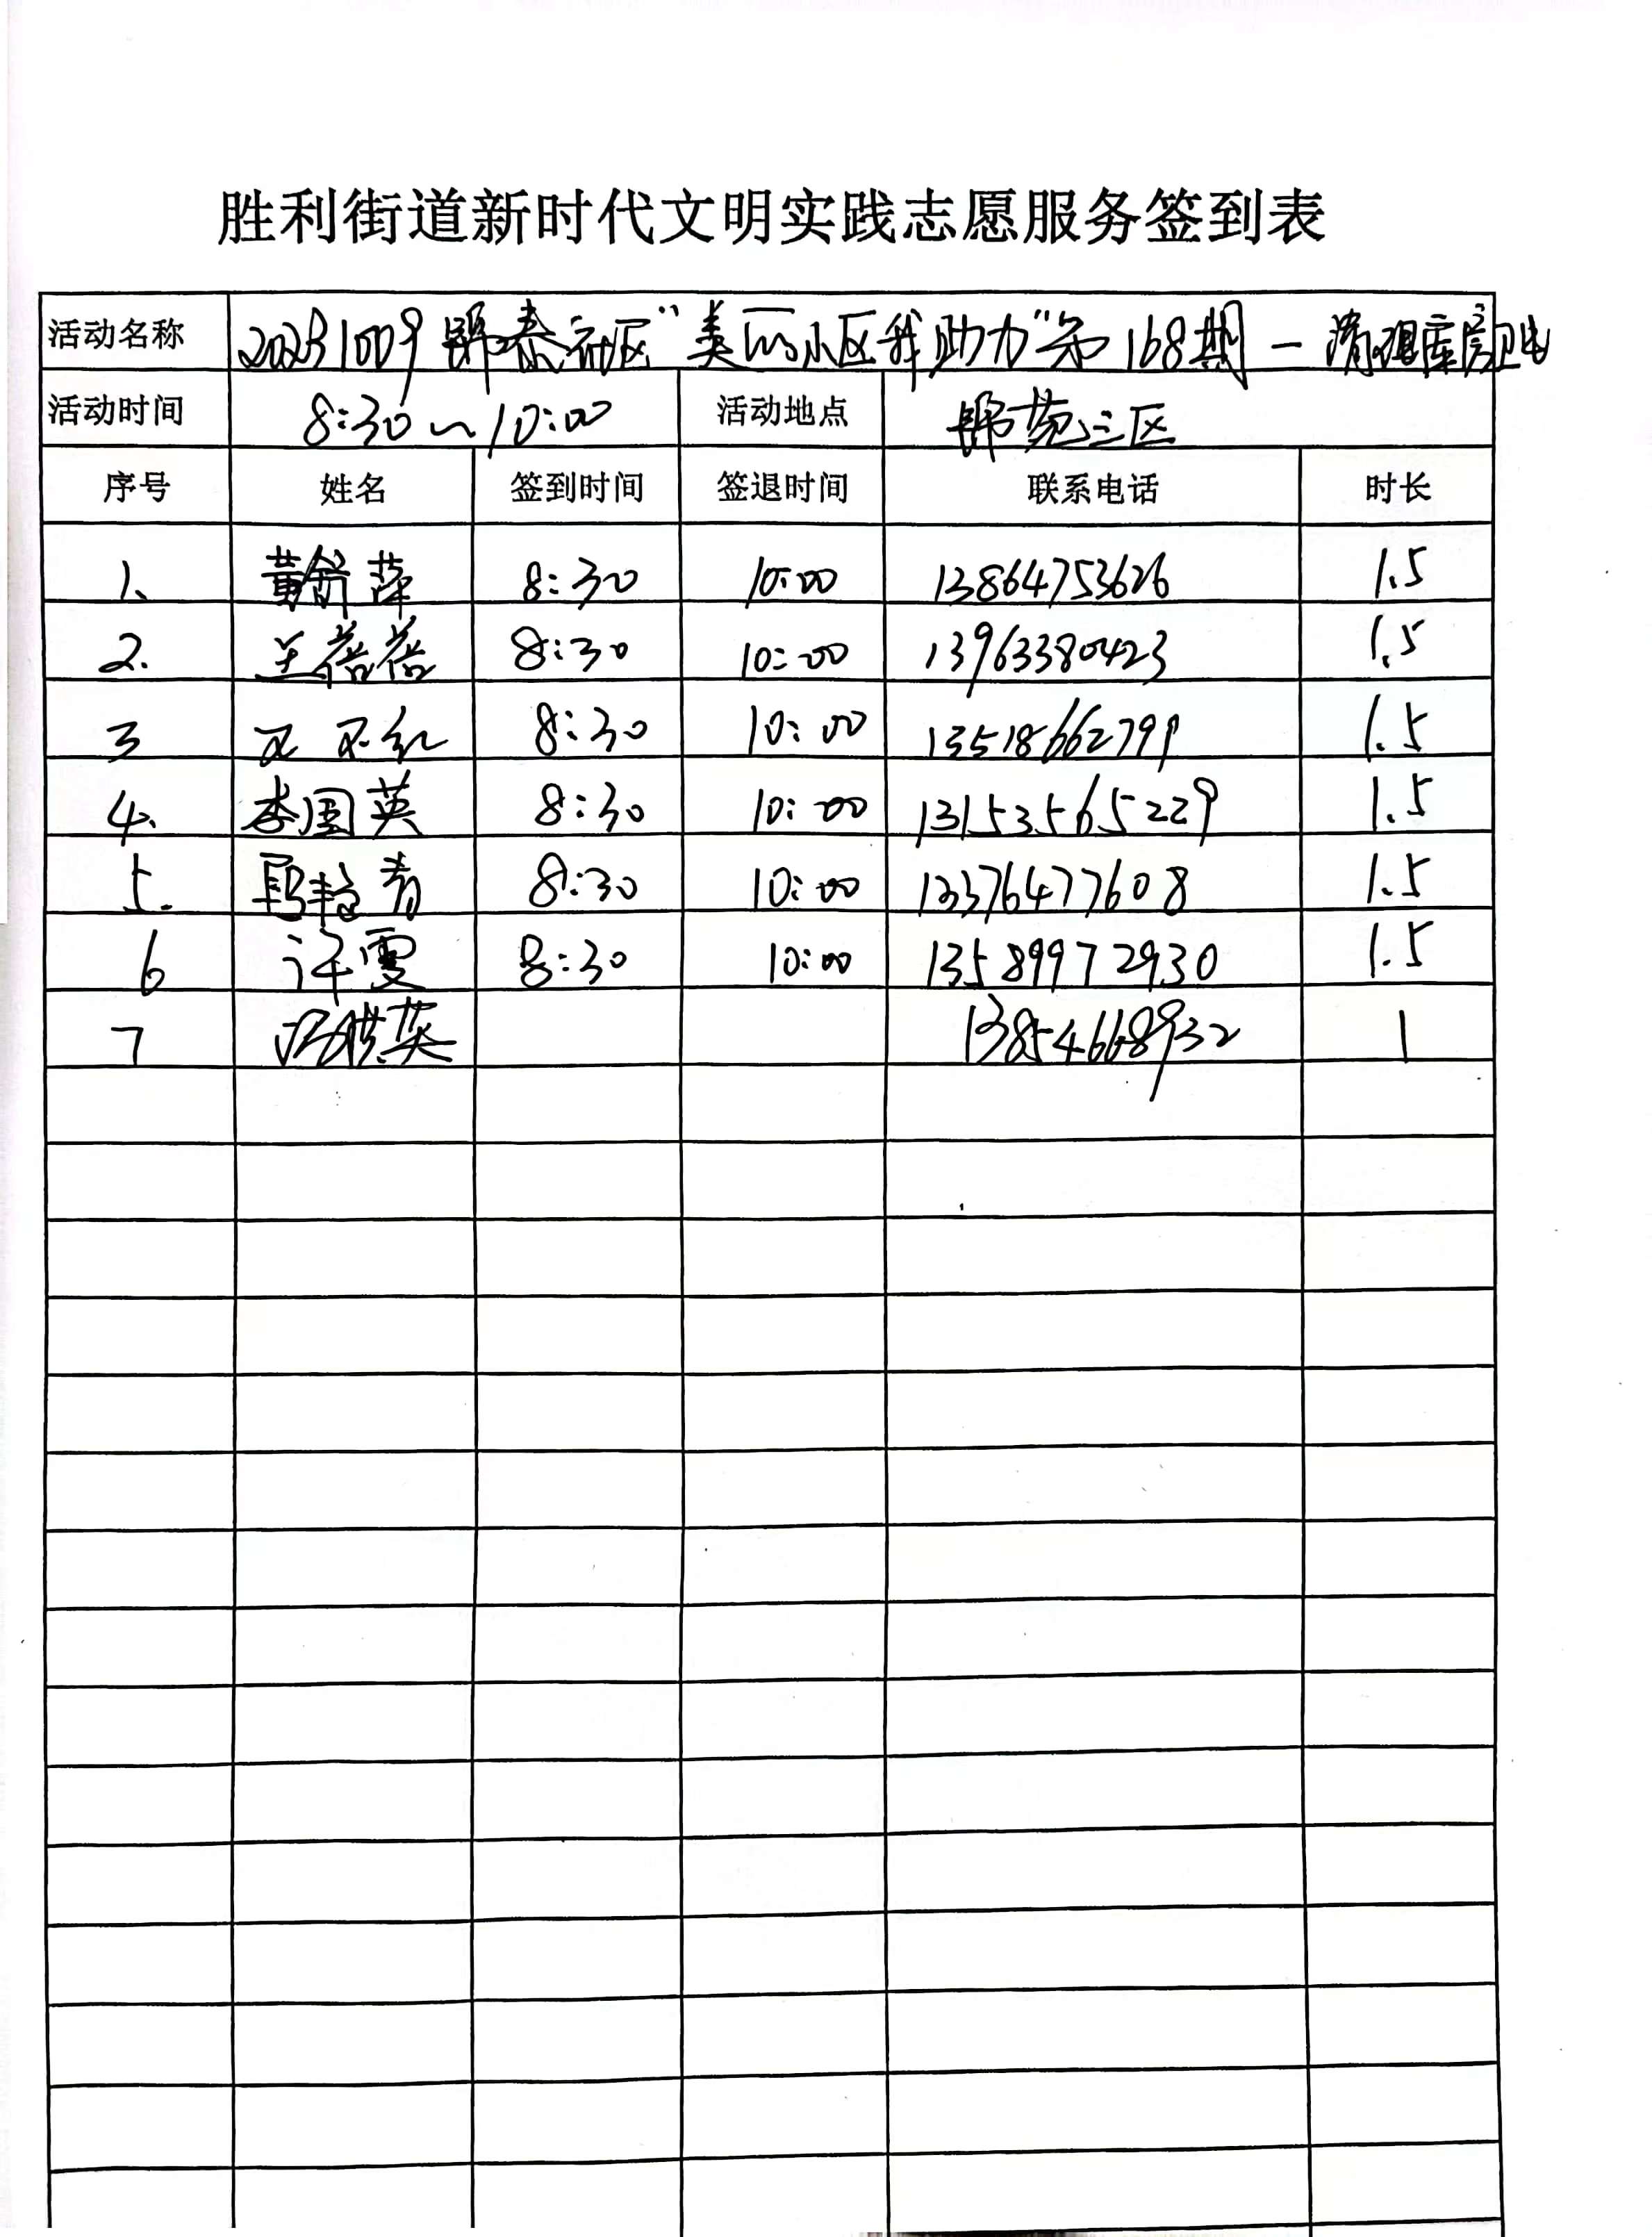 胜利街道新时代文明实践志愿服务签到表
活动名称 20231009 锦泰社区“美丽小区我助力”第168期－清理库房卫生
活动时间 8:30～10:00 活动地点 锦苑三区
序号 姓名 签到时间 签退时间 联系电话 时长
1、 黄舒萍 8:30 10:00 13864753626 1.5
2. 王蓓蓓 8:30 10:00 13963380423 1.5
3 8:30 10:00 1.5
4. 李国英 8:30 10:00 13153565229 1.5
5. 段艳青 8:30 10:00 13376477608 1.5
6 许雯 8:30 10:00 13589972930 1.5
7 冯洪英 13854668932 1